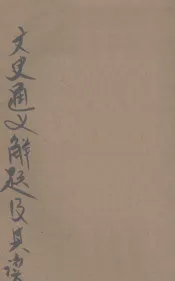 文史通义解题及其读